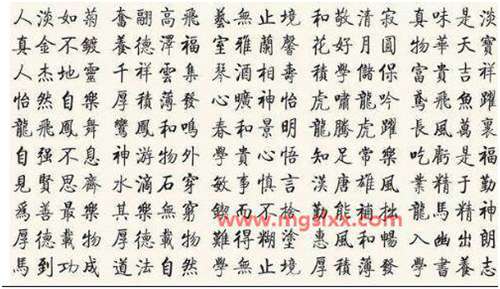 人淡如菊 奮翮高飛 藝無止境 和敬清寂 真味是淡
真金不鍍 養德澤福 室雅蘭馨 花好月圓 物華天寶
人杰地靈 千祥雲集 琴酒相壽 積學儲保 富貴吉祥
怡然自樂 厚積薄發 心曠神怡 虎嘯龍吟 鳶飛魚躍
龍飛鳳舞 鸞鳳和鳴 春和景明 龍騰虎躍 長風萬裏
自強不息 神游物外 學貴心悟 知足常樂 吃虧是福
見賢思齊 水滴石穿 敏事慎言 漢唐雄風 業精于勤
爲善最樂 其樂無窮 而不捨 勤能補拙 龍馬精神
www.mgsixx.com
厚德載物 厚德載物 難得糊塗 惠風和暢 入幽出朗
馬到功成 道法自然 學無止境 厚積薄發 學書養志